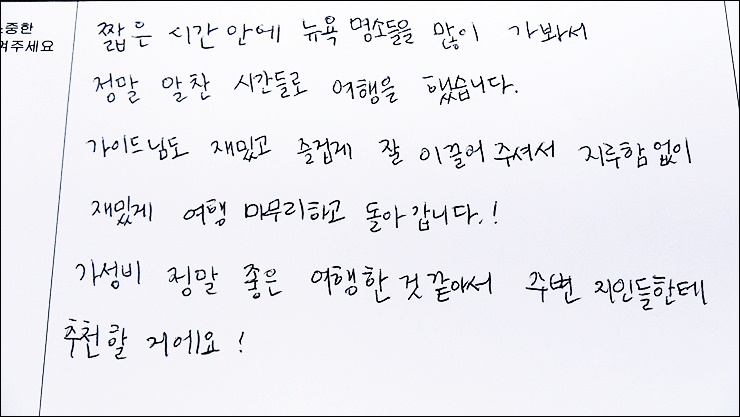 소중한
겨주세요
짧은 시간 안에 뉴욕 명소들을 많이 가봐서
정말 알찬 시간들로 여행을 했습니다.
가이드님도 재밌고 즐겁게 잘 이끌어 주셔서 지루함 없이
재밌게 여행 마무리하고 돌아갑니다.!
가성비 정말 좋은 여행한 것 같아서 주변 지인들한테
추천할 거에요!